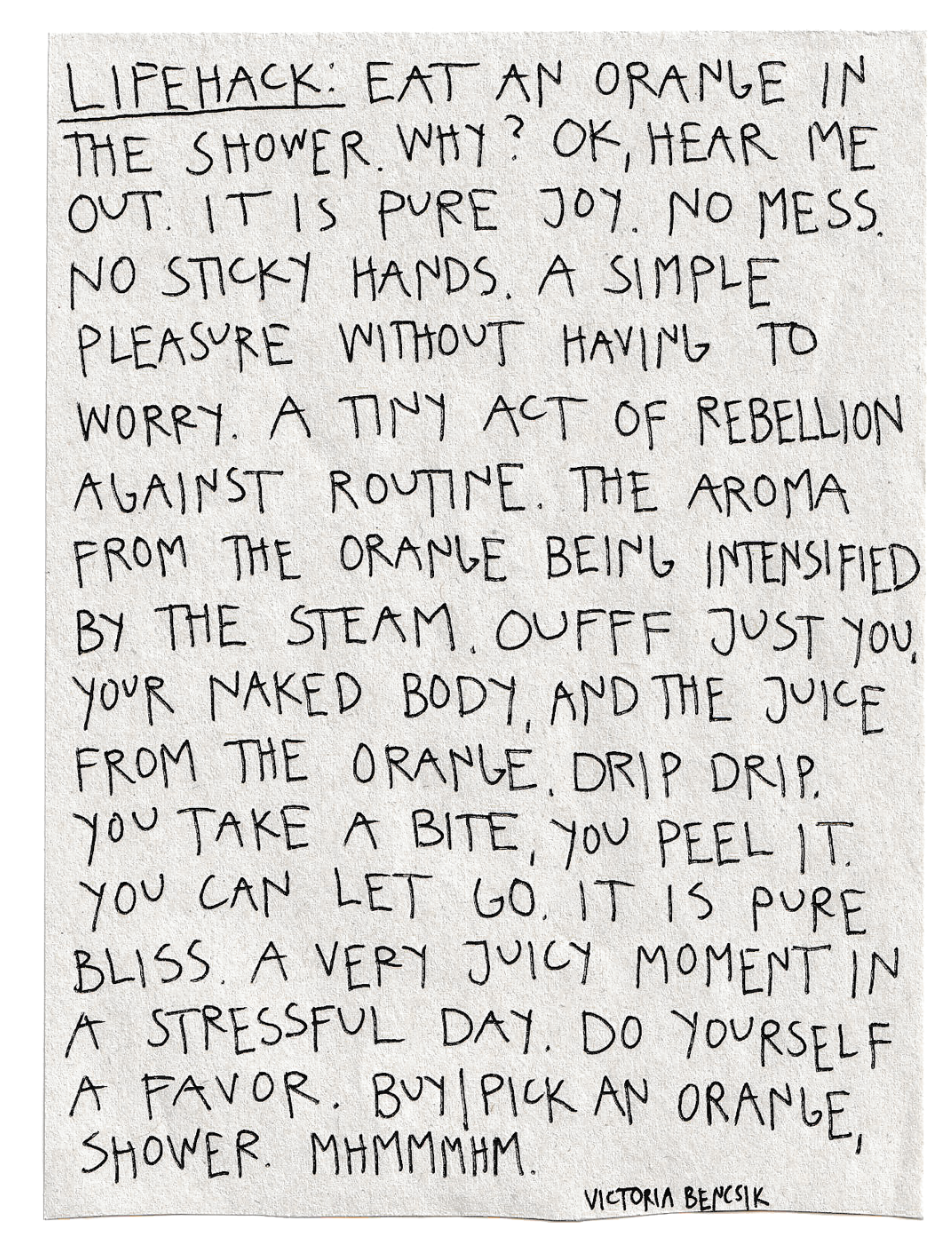 LIFEHACK: EAT AN ORANGE IN
THE SHOWER. WHY? OK, HEAR ME
OUT. IT IS PURE JOY. NO MESS.
NO STICKY HANDS. A SIMPLE
PLEASURE WITHOUT HAVING TO
WORRY. A TINY ACT OF REBELLION
AGAINST ROUTINE. THE AROMA
FROM THE ORANGE BEING INTENSIFIED
BY THE STEAM. OUFFF JUST YOU,
YOUR NAKED BODY, AND THE JUICE
FROM THE ORANGE. DRIP DRIP.
YOU TAKE A BITE, YOU PEEL IT.
YOU CAN LET GO. IT IS PURE
BLISS. A VERY JUICY MOMENT IN
A STRESSFUL DAY. DO YOURSELF
A FAVOR. BUY|PICK AN ORANGE,
SHOWER. MHMMMHM.
VICTORIA BENCSIK